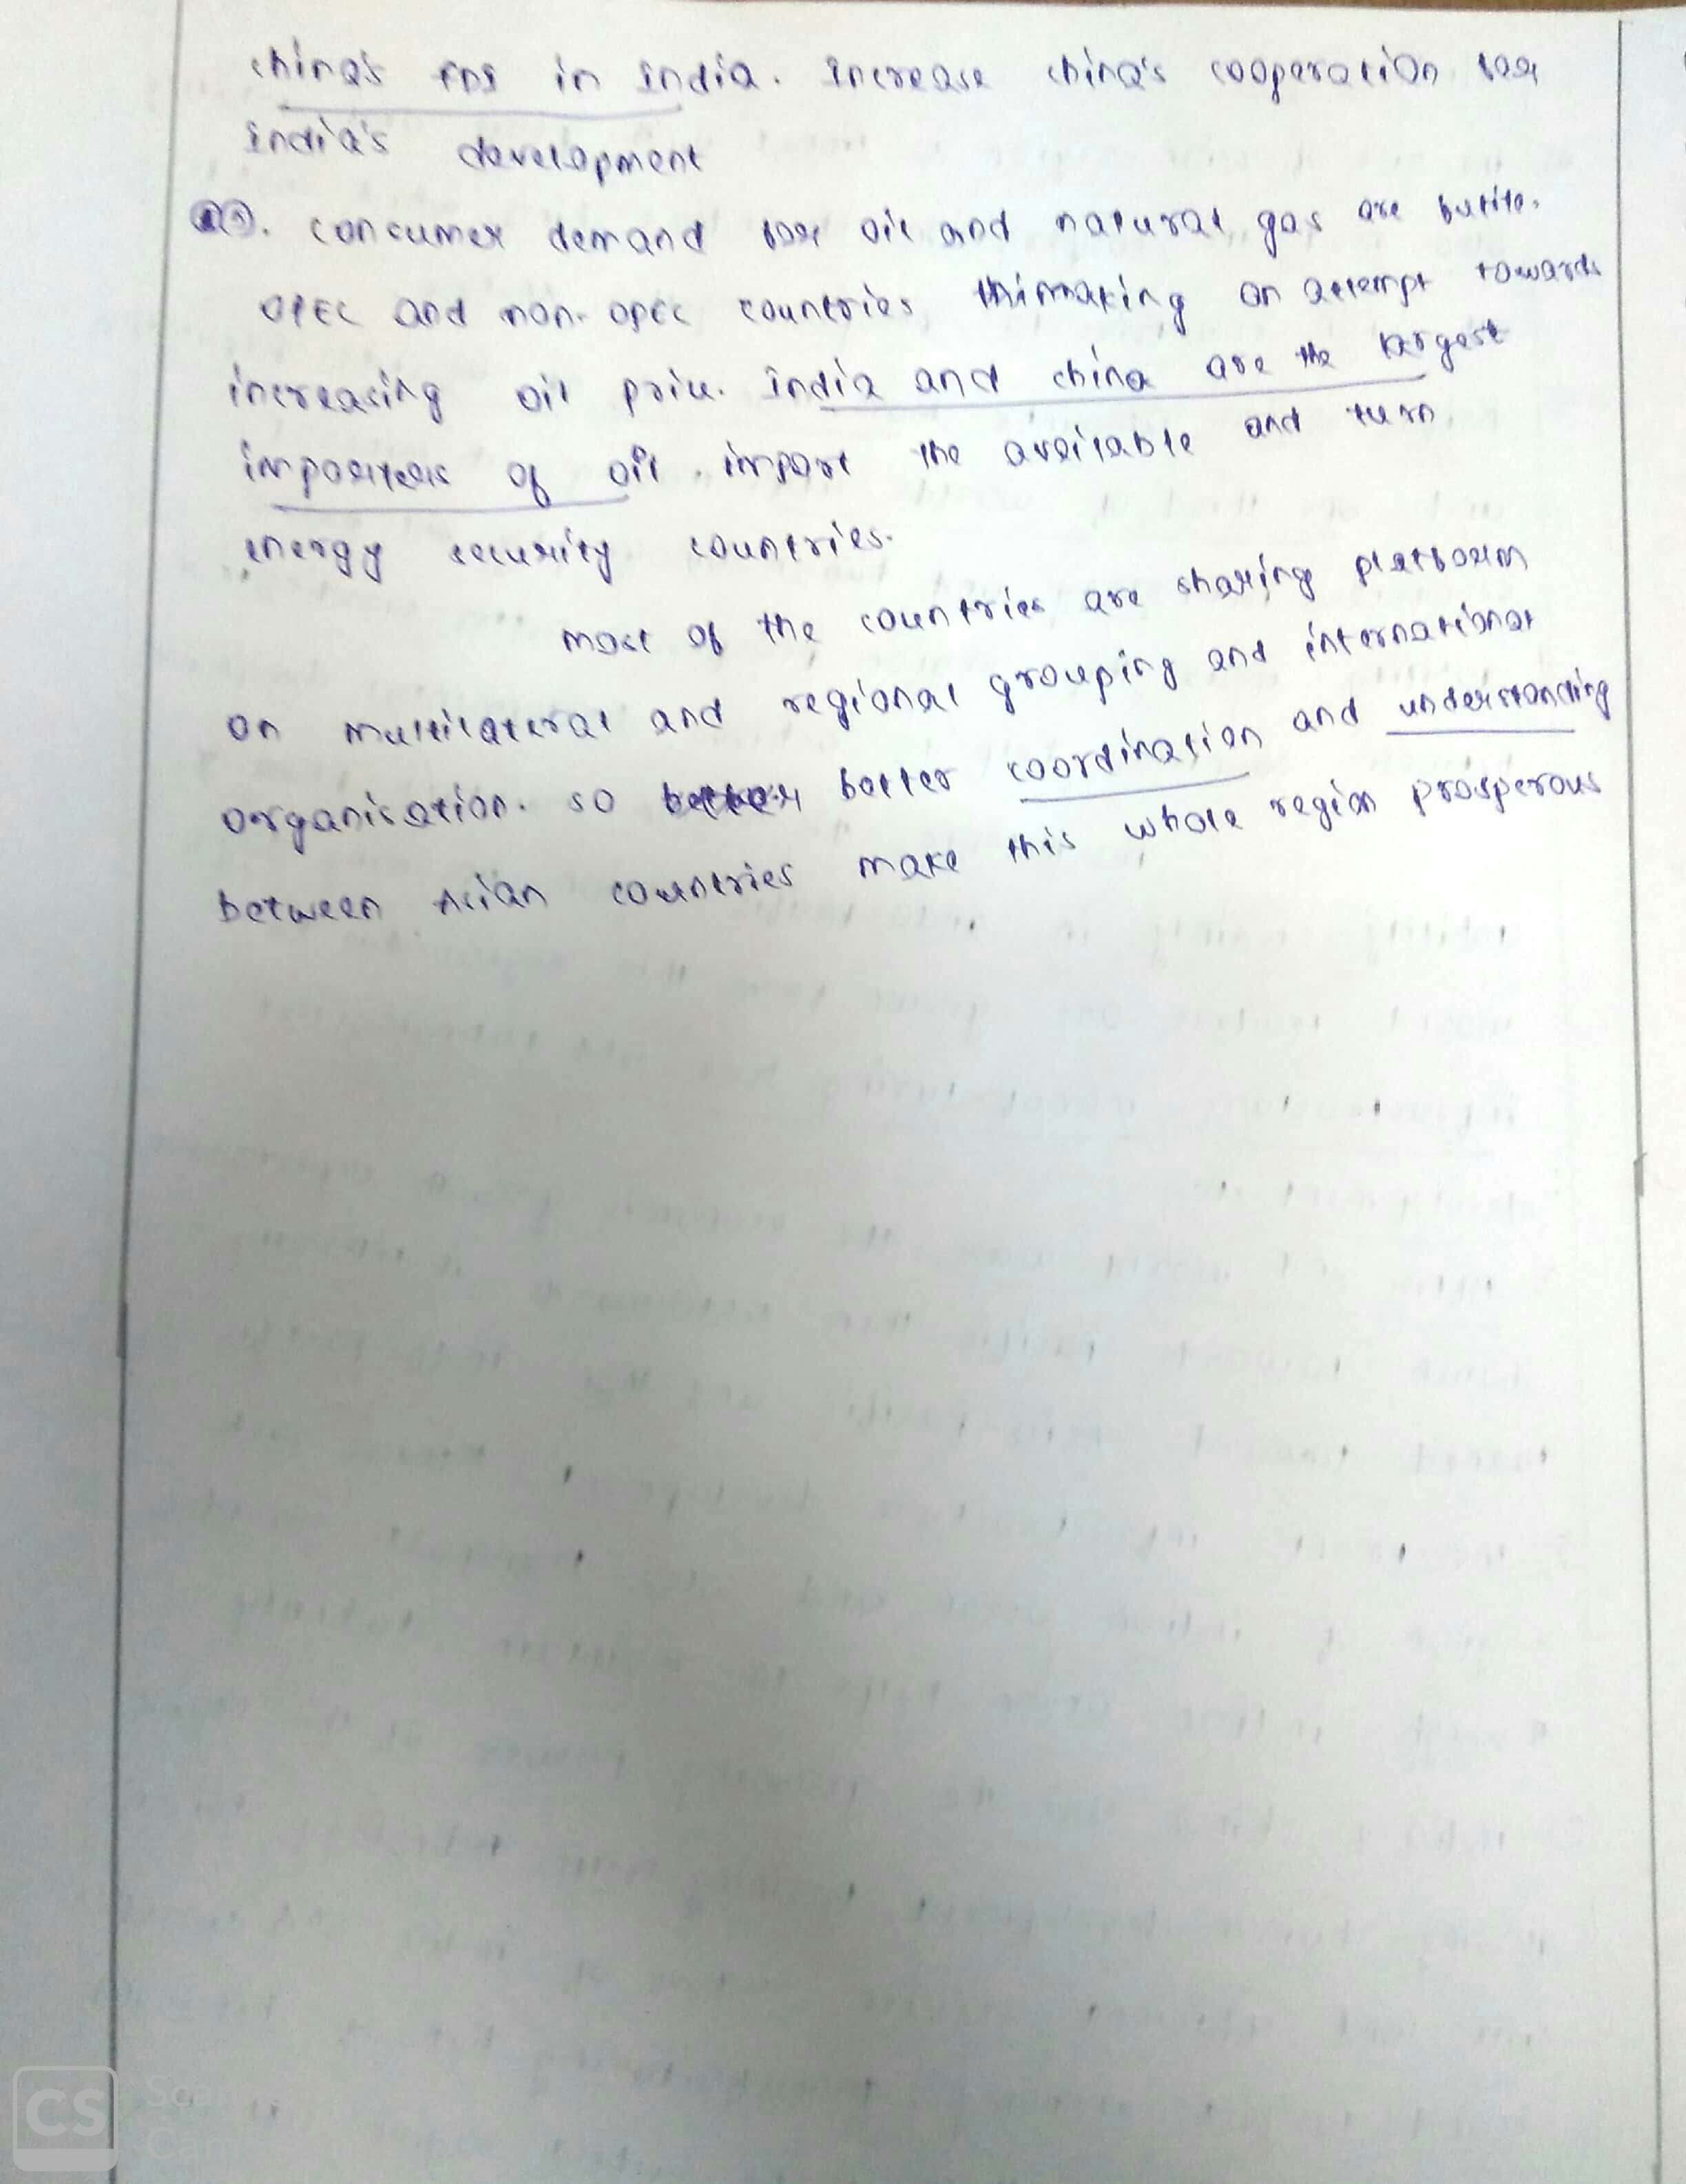 china's FDI in India. Increase china's cooperation for
India's development
consumer demand for oil and natural gas are
OPEC and non-OPEC countries, an attempt towards
increasing oil price. India and china are the largest
importers of oil. import the available and turn
energy security countries.
most of the countries are sharing platform
on multilateral and regional grouping and international
organisation. so better coordination and understanding
between Asian countries make this whole region prosperous
CS